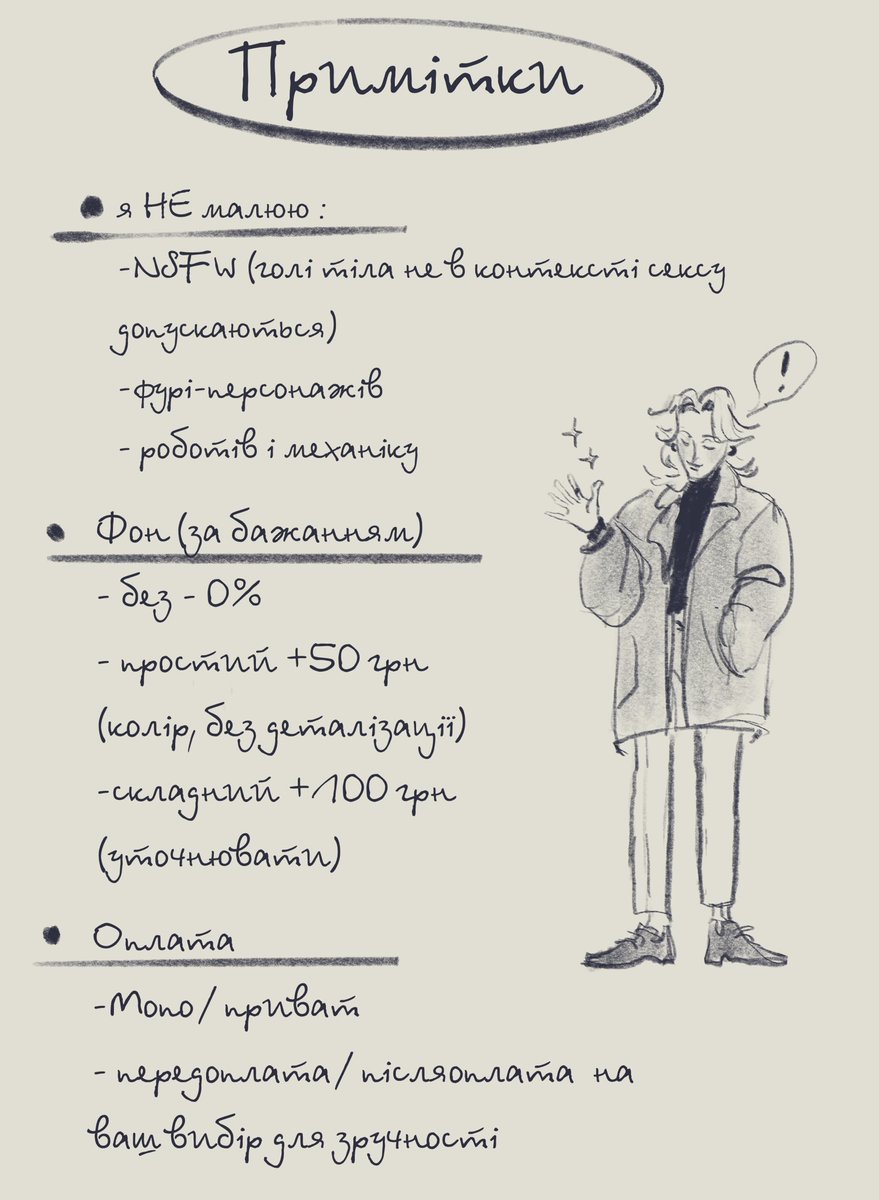 Примітки
• я НЕ малюю :
-NSFW (голі тіла не в контексті сексу
допускаються)
-фурі-персонажів
- роботів і механіку
• Фон (за бажанням)
- без - 0%
- простий +50 грн
(колір, без деталізації)
-складний +100 грн
(уточнювати)
• Оплата
-Mono / приват
- передоплата / післяоплата на
ваш вибір для зручності
!